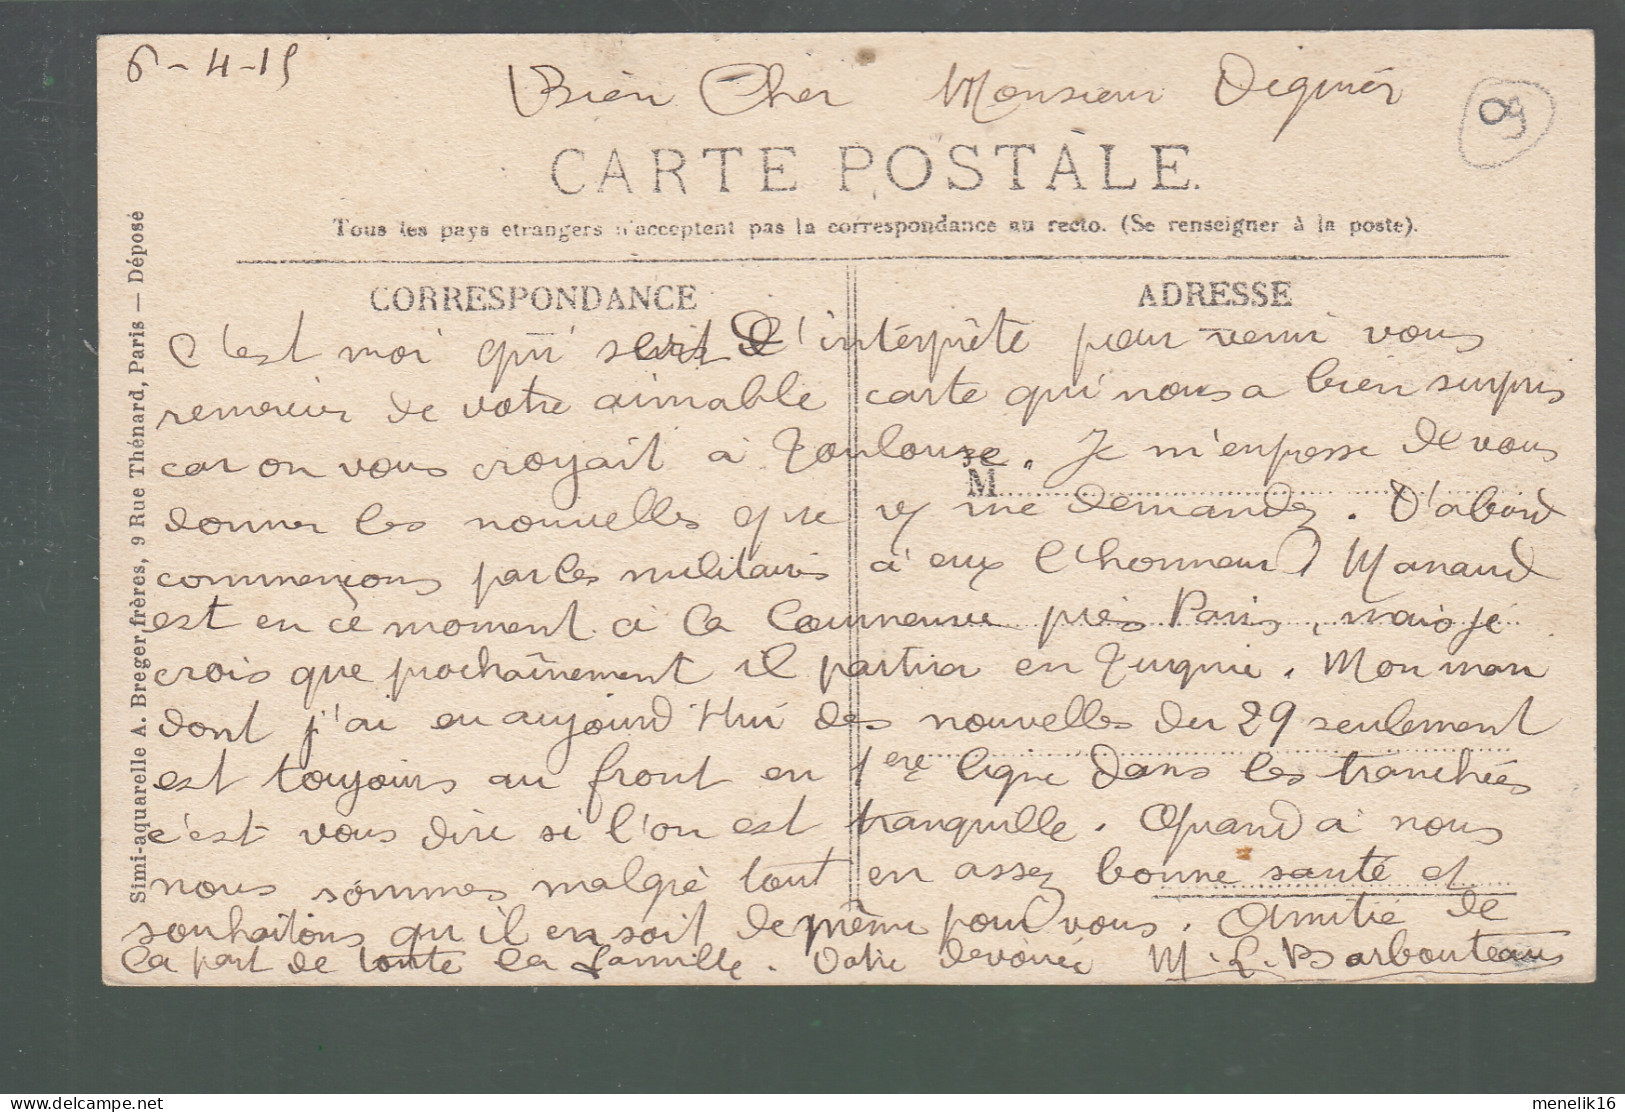 6-4-15
Bien Cher Monsieur
09
CARTE POSTALE.
Tous les pays etrangers n'acceptent pas la correspondance au recto. (Se renseigner à la poste).
CORRESPONDANCE
ADRESSE
M
Simi-aquarelle A. Breger frères, 9 Rue Thénard, Paris — Déposé
C'est moi qui l'interprète pour venir vous
remercier de votre aimable carte qui nous a bien surpris
car on vous croyait à Toulouse. Je m'enpresse de vous
donner les nouvelles que v/ me demandez. D'abord
commençons par les militaires à eux l'honneur Manaud
est en ce moment à la Courneuve près Paris, mais je
crois que prochainement il partira en Turquie. Mon mari
dont j'ai eu aujourd'hui des nouvelles du 29 seulement
est toujours au front en 1ere ligne dans les tranchées
c'est vous dire si l'on est tranquille. Quand à nous
nous sommes malgré tout en assez bonne santé et
souhaitons qu'il en soit de même pour vous. Amitié de
la part de toute la famille. Votre dévouée M. L. Barbouteau
menelik16